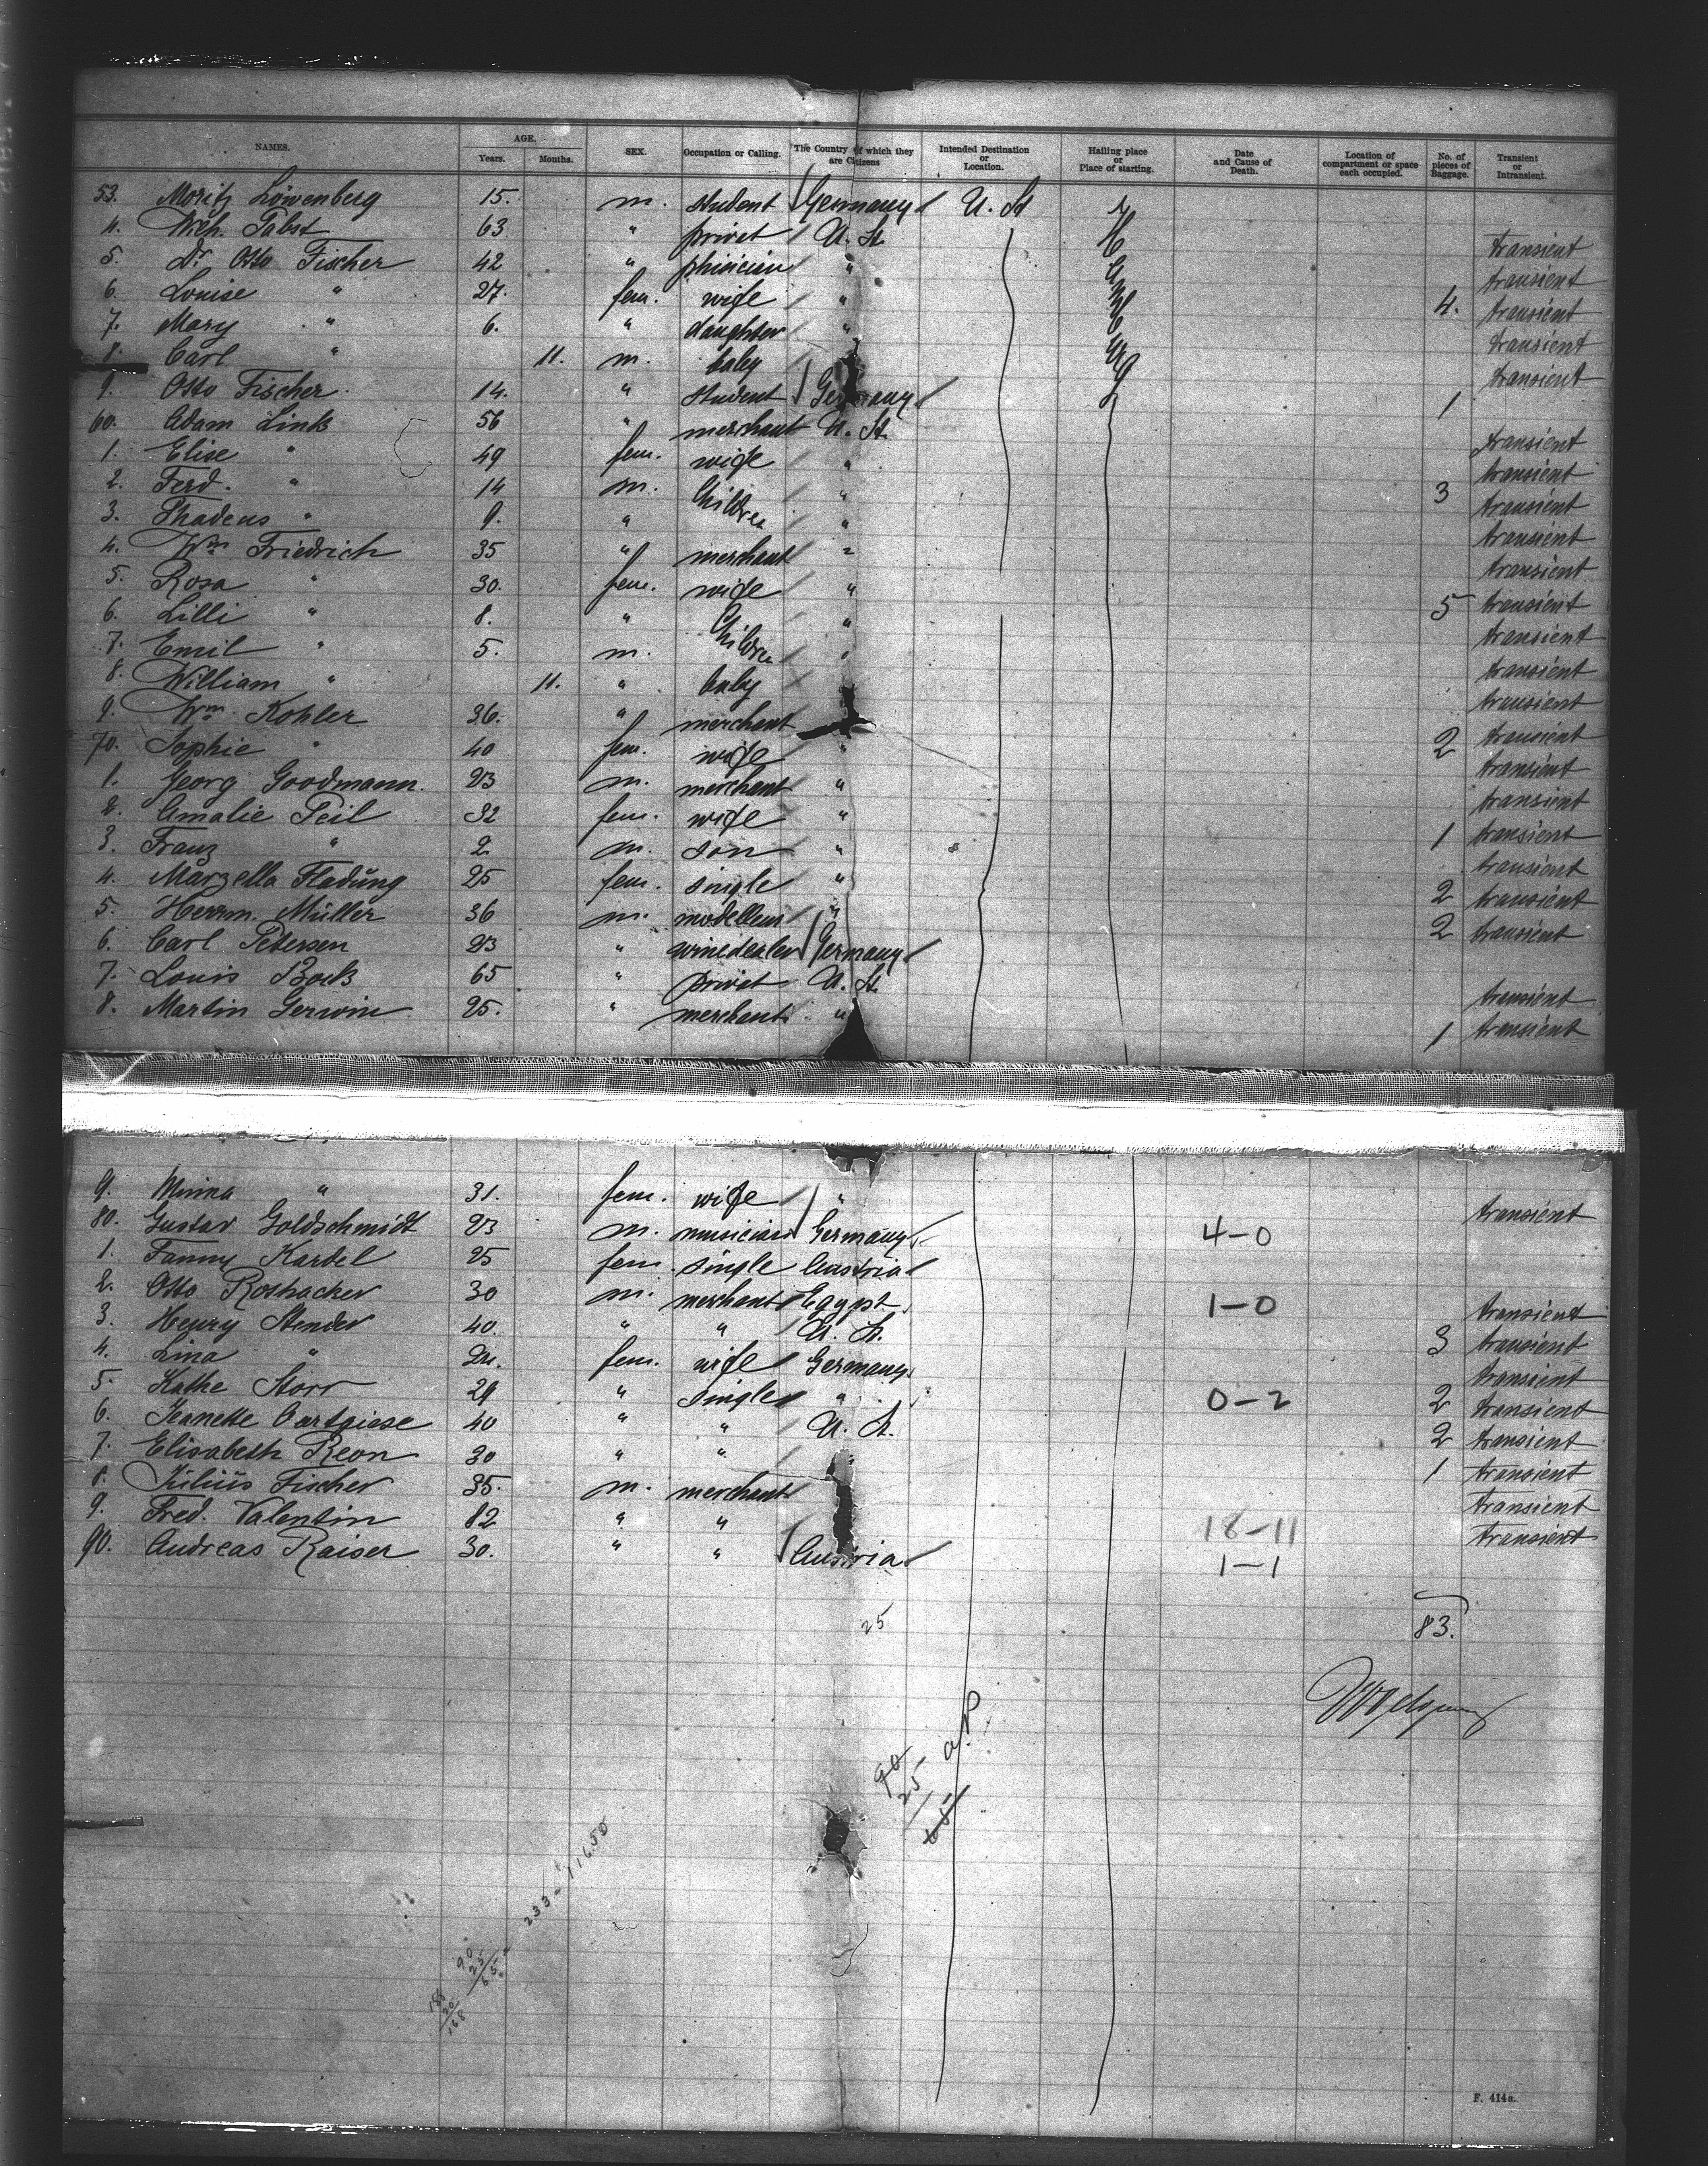 NAMES. AGE. Years. Months. SEX. Occupation or Calling. The Country of which they are Citizens Intended Destination or Location. Hailing place or Place of starting. Date and Cause of Death. Location of compartment or space each occupied. No. of pieces of Baggage. Transient or Intransient.
53. Moritz Löwenberg 15. m. student Germany U. St
4. Wilh. Pabst 63 " privet U. St. transient
5. Dr Otto Fischer 42 " phisician " transient
6. Louise " 27. fem. wife " 4. transient
7. Mary " 6. " daughter " transient
8. Carl " 11. m. baby transient
9. Otto Fischer 14. " student Germany 1
60. Adam Link 56 " merchant U. St. transient
1. Elise " 49 fem. wife " transient
2. Ferd. " 14 m. Children " 3 transient
3. Thadeus " 9. " " transient
4. Wm Friedrich 35 " merchant " transient
5. Rosa " 30. fem. wife " 5 transient
6. Lilli " 8. " Children " transient
7. Emil " 5. m. " transient
8. William " 11. " baby transient
9. Wm Kohler 36. " merchant 2 transient
70. Sophie " 40 fem. wife " transient
1. Georg Goodmann 23 m. merchant " transient
2. Amalie Peil 32 fem. wife " 1 transient
3. Franz " 2 m. son " transient
4. Marzella Fladung 25 fem. single " 2 transient
5. Herrm. Müller 36 m. modelleur " 2 transient
6. Carl Petersen 23 " winedealer Germany
7. Louis Bock 65 " privet U. St. transient
8. Martin Gerwin 25. " merchant " 1 transient
9. Minna " 31. fem. wife " transient
80. Gustav Goldschmidt 23 m. musician Germany 4-0
1. Fanny Kardel 25 fem. single Austria
2. Otto Roshacker 30 m. merchant Egypt 1-0 transient
3. Henry Stender 40. " " U. St. 3 transient
4. Lina " 24. fem. wife Germany transient
5. Kathe Storr 29 " single " 0-2 2 transient
6. Jeanette 40 " " U. St. 2 transient
7. Elisabeth Reon 30 " " 1 transient
8. Julius Fischer 35. m. merchant transient
9. Fred. Valentin 82 " " 18-11 transient
90. Andreas Kaiser 30. " " Austria 1-1
25
83.
90
25
65
233 - 11650
90
25
65
188
20
168
F. 414a.